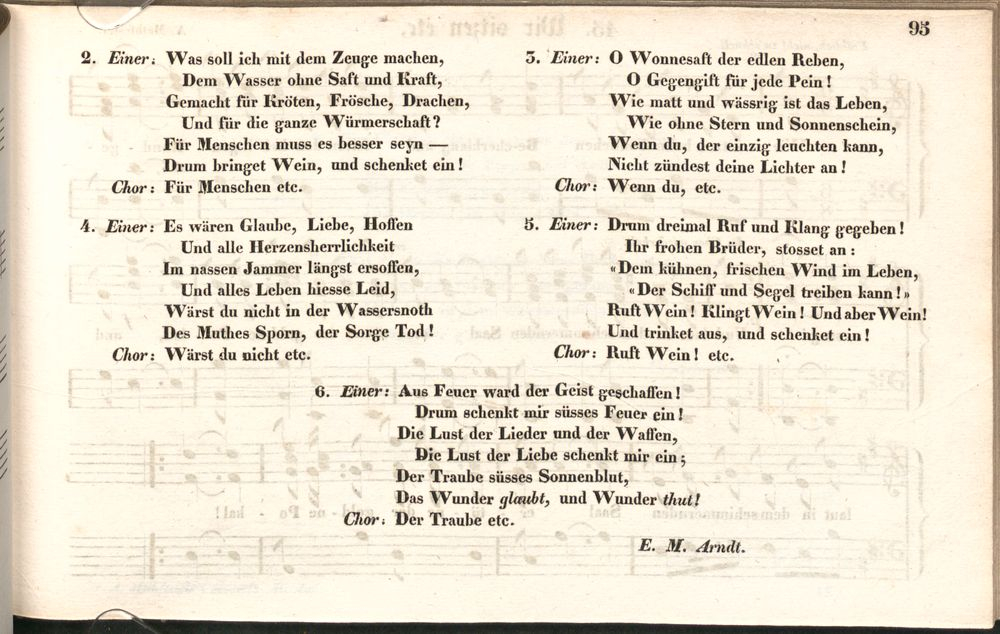 95
2. Einer: Was soll ich mit dem Zeuge machen,
Dem Wasser ohne Saft und Kraft,
Gemacht für Kröten, Frösche, Drachen,
Und für die ganze Würmerschaft?
Für Menschen muss es besser seyn —
Drum bringet Wein, und schenket ein!
Chor: Für Menschen etc.
3. Einer: O Wonnesaft der edlen Reben,
O Gegengift für jede Pein!
Wie matt und wässrig ist das Leben,
Wie ohne Stern und Sonnenschein,
Wenn du, der einzig leuchten kann,
Nicht zündest deine Lichter an!
Chor: Wenn du, etc.
4. Einer: Es wären Glaube, Liebe, Hoffen
Und alle Herzensherrlichkeit
Im nassen Jammer längst ersoffen,
Und alles Leben hiesse Leid,
Wärst du nicht in der Wassersnoth
Des Muthes Sporn, der Sorge Tod!
Chor: Wärst du nicht etc.
5. Einer: Drum dreimal Ruf und Klang gegeben!
Ihr frohen Brüder, stosset an:
«Dem kühnen, frischen Wind im Leben,
«Der Schiff und Segel treiben kann!»
Ruft Wein! Klingt Wein! Und aber Wein!
Und trinket aus, und schenket ein!
Chor: Ruft Wein! etc.
6. Einer: Aus Feuer ward der Geist geschaffen!
Drum schenkt mir süsses Feuer ein!
Die Lust der Lieder und der Waffen,
Die Lust der Liebe schenkt mir ein;
Der Traube süsses Sonnenblut,
Das Wunder glaubt, und Wunder thut!
Chor: Der Traube etc.
E. M. Arndt.